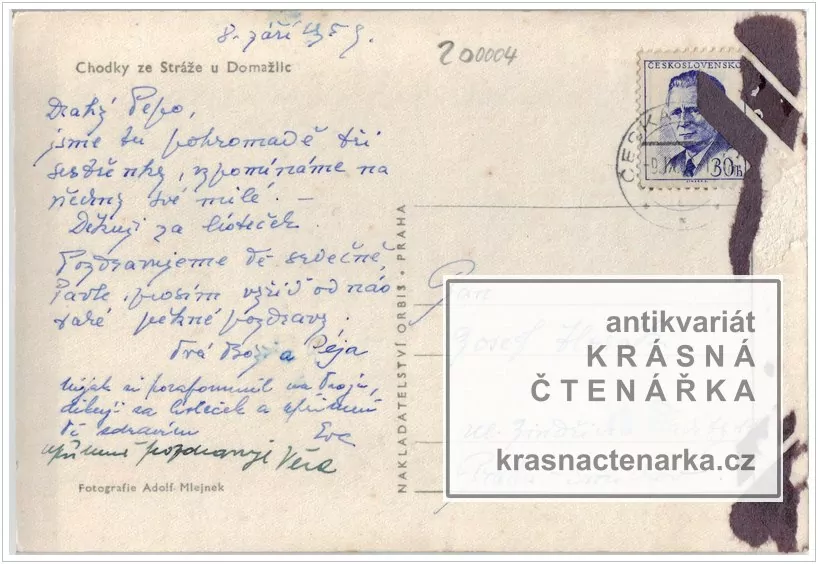 8. září 1959.
200004
Chodky ze Stráže u Domažlic
ČESKOSLOVENSKO
30h
Drahý Pepo,
jsme tu pohromadě tři
sestřenky, vzpomínáme na
všechny své milé. —
Děkuji za lísteček.
Pozdravujeme Tě srdečně,
Pavle, prosím vyřiď od nás
také pěkné pozdravy.
Tvá Boži a Péja
si zapomněl na Evoju,
děkuji za lísteček a upřímně
Tě zdravím Eva
upřímně pozdravuje Věra
Fotografie Adolf Mlejnek
NAKLADATELSTVÍ ORBIS • PRAHA
Josef
ul. Jindřicha
antikvariát
KRÁSNÁ
ČTENÁŘKA
krasnactenarka.cz